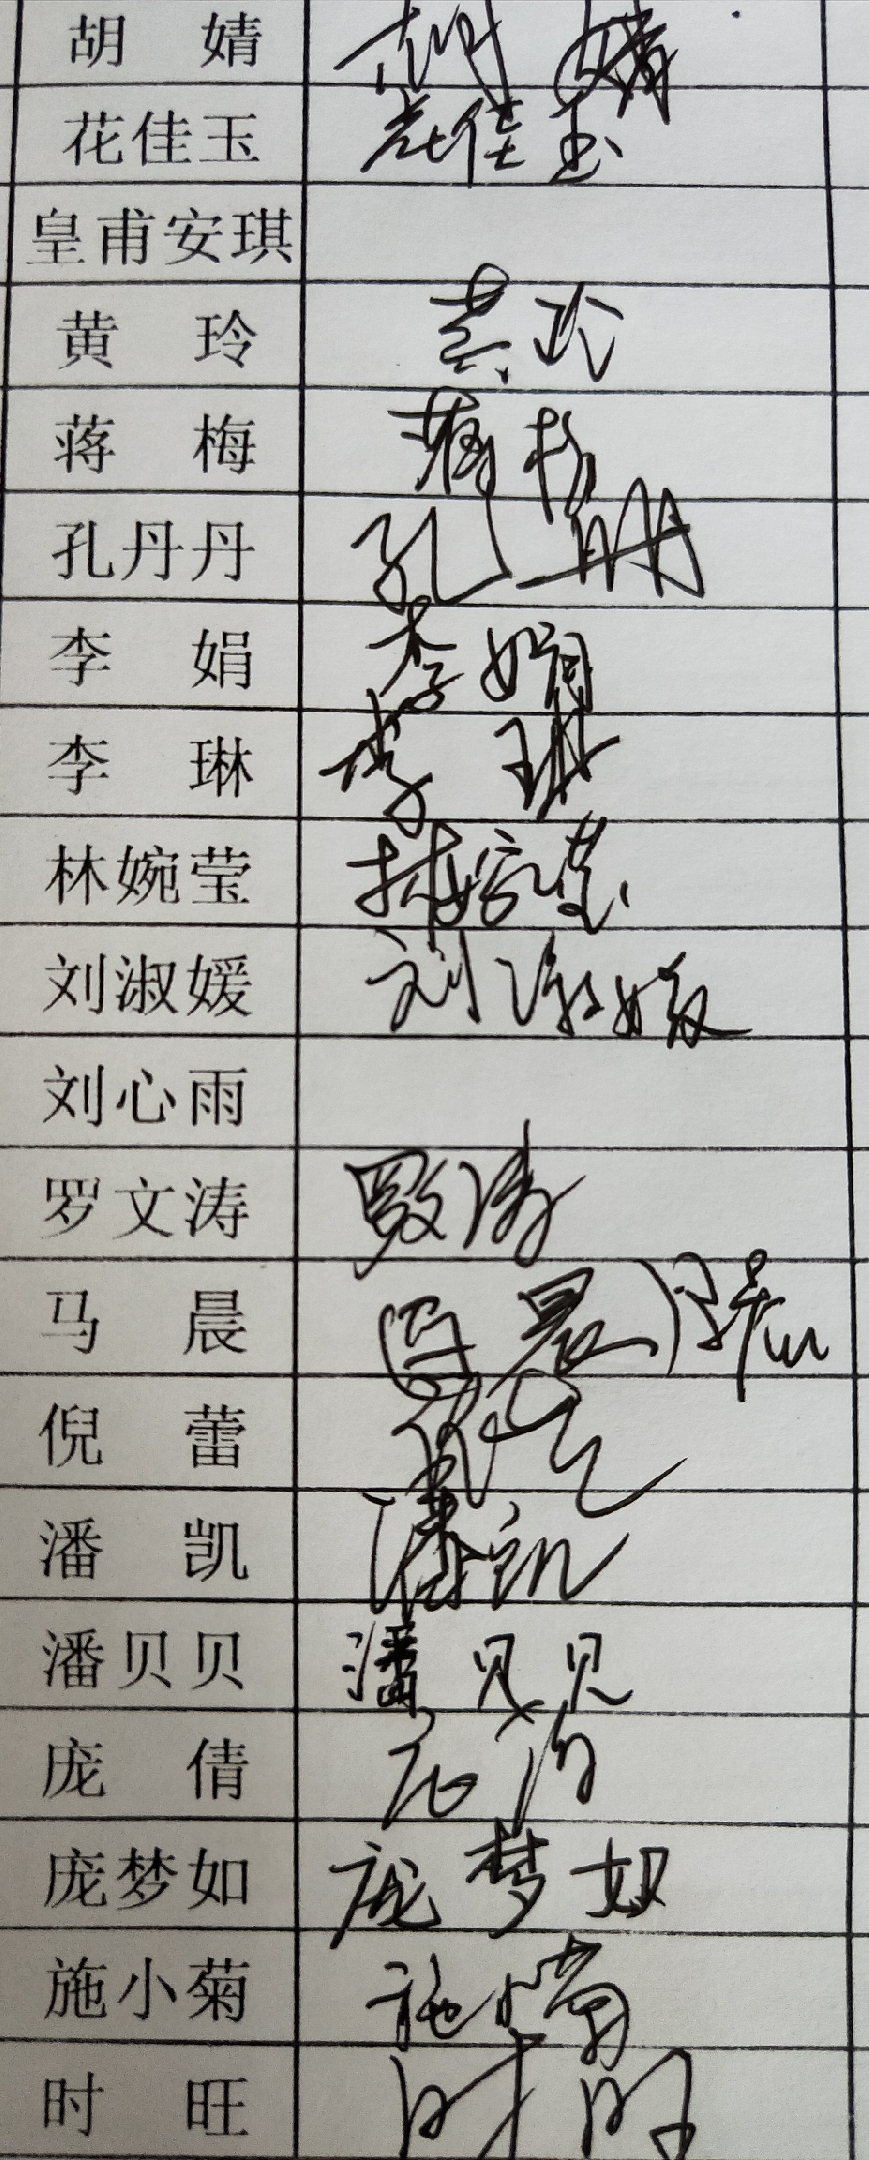 胡 婧 胡 婧
花佳玉 花佳玉
皇甫安琪
黄 玲 黄玲
蒋 梅 蒋梅
孔丹丹 孔丹丹
李 娟 李娟
李 琳 李琳
林婉莹 林婉莹
刘淑媛 刘淑媛
刘心雨
罗文涛 罗文涛
马 晨 马晨
倪 蕾
潘 凯 潘凯
潘贝贝 潘贝贝
庞 倩 庞倩
庞梦如 庞梦如
施小菊 施小菊
时 旺 时旺